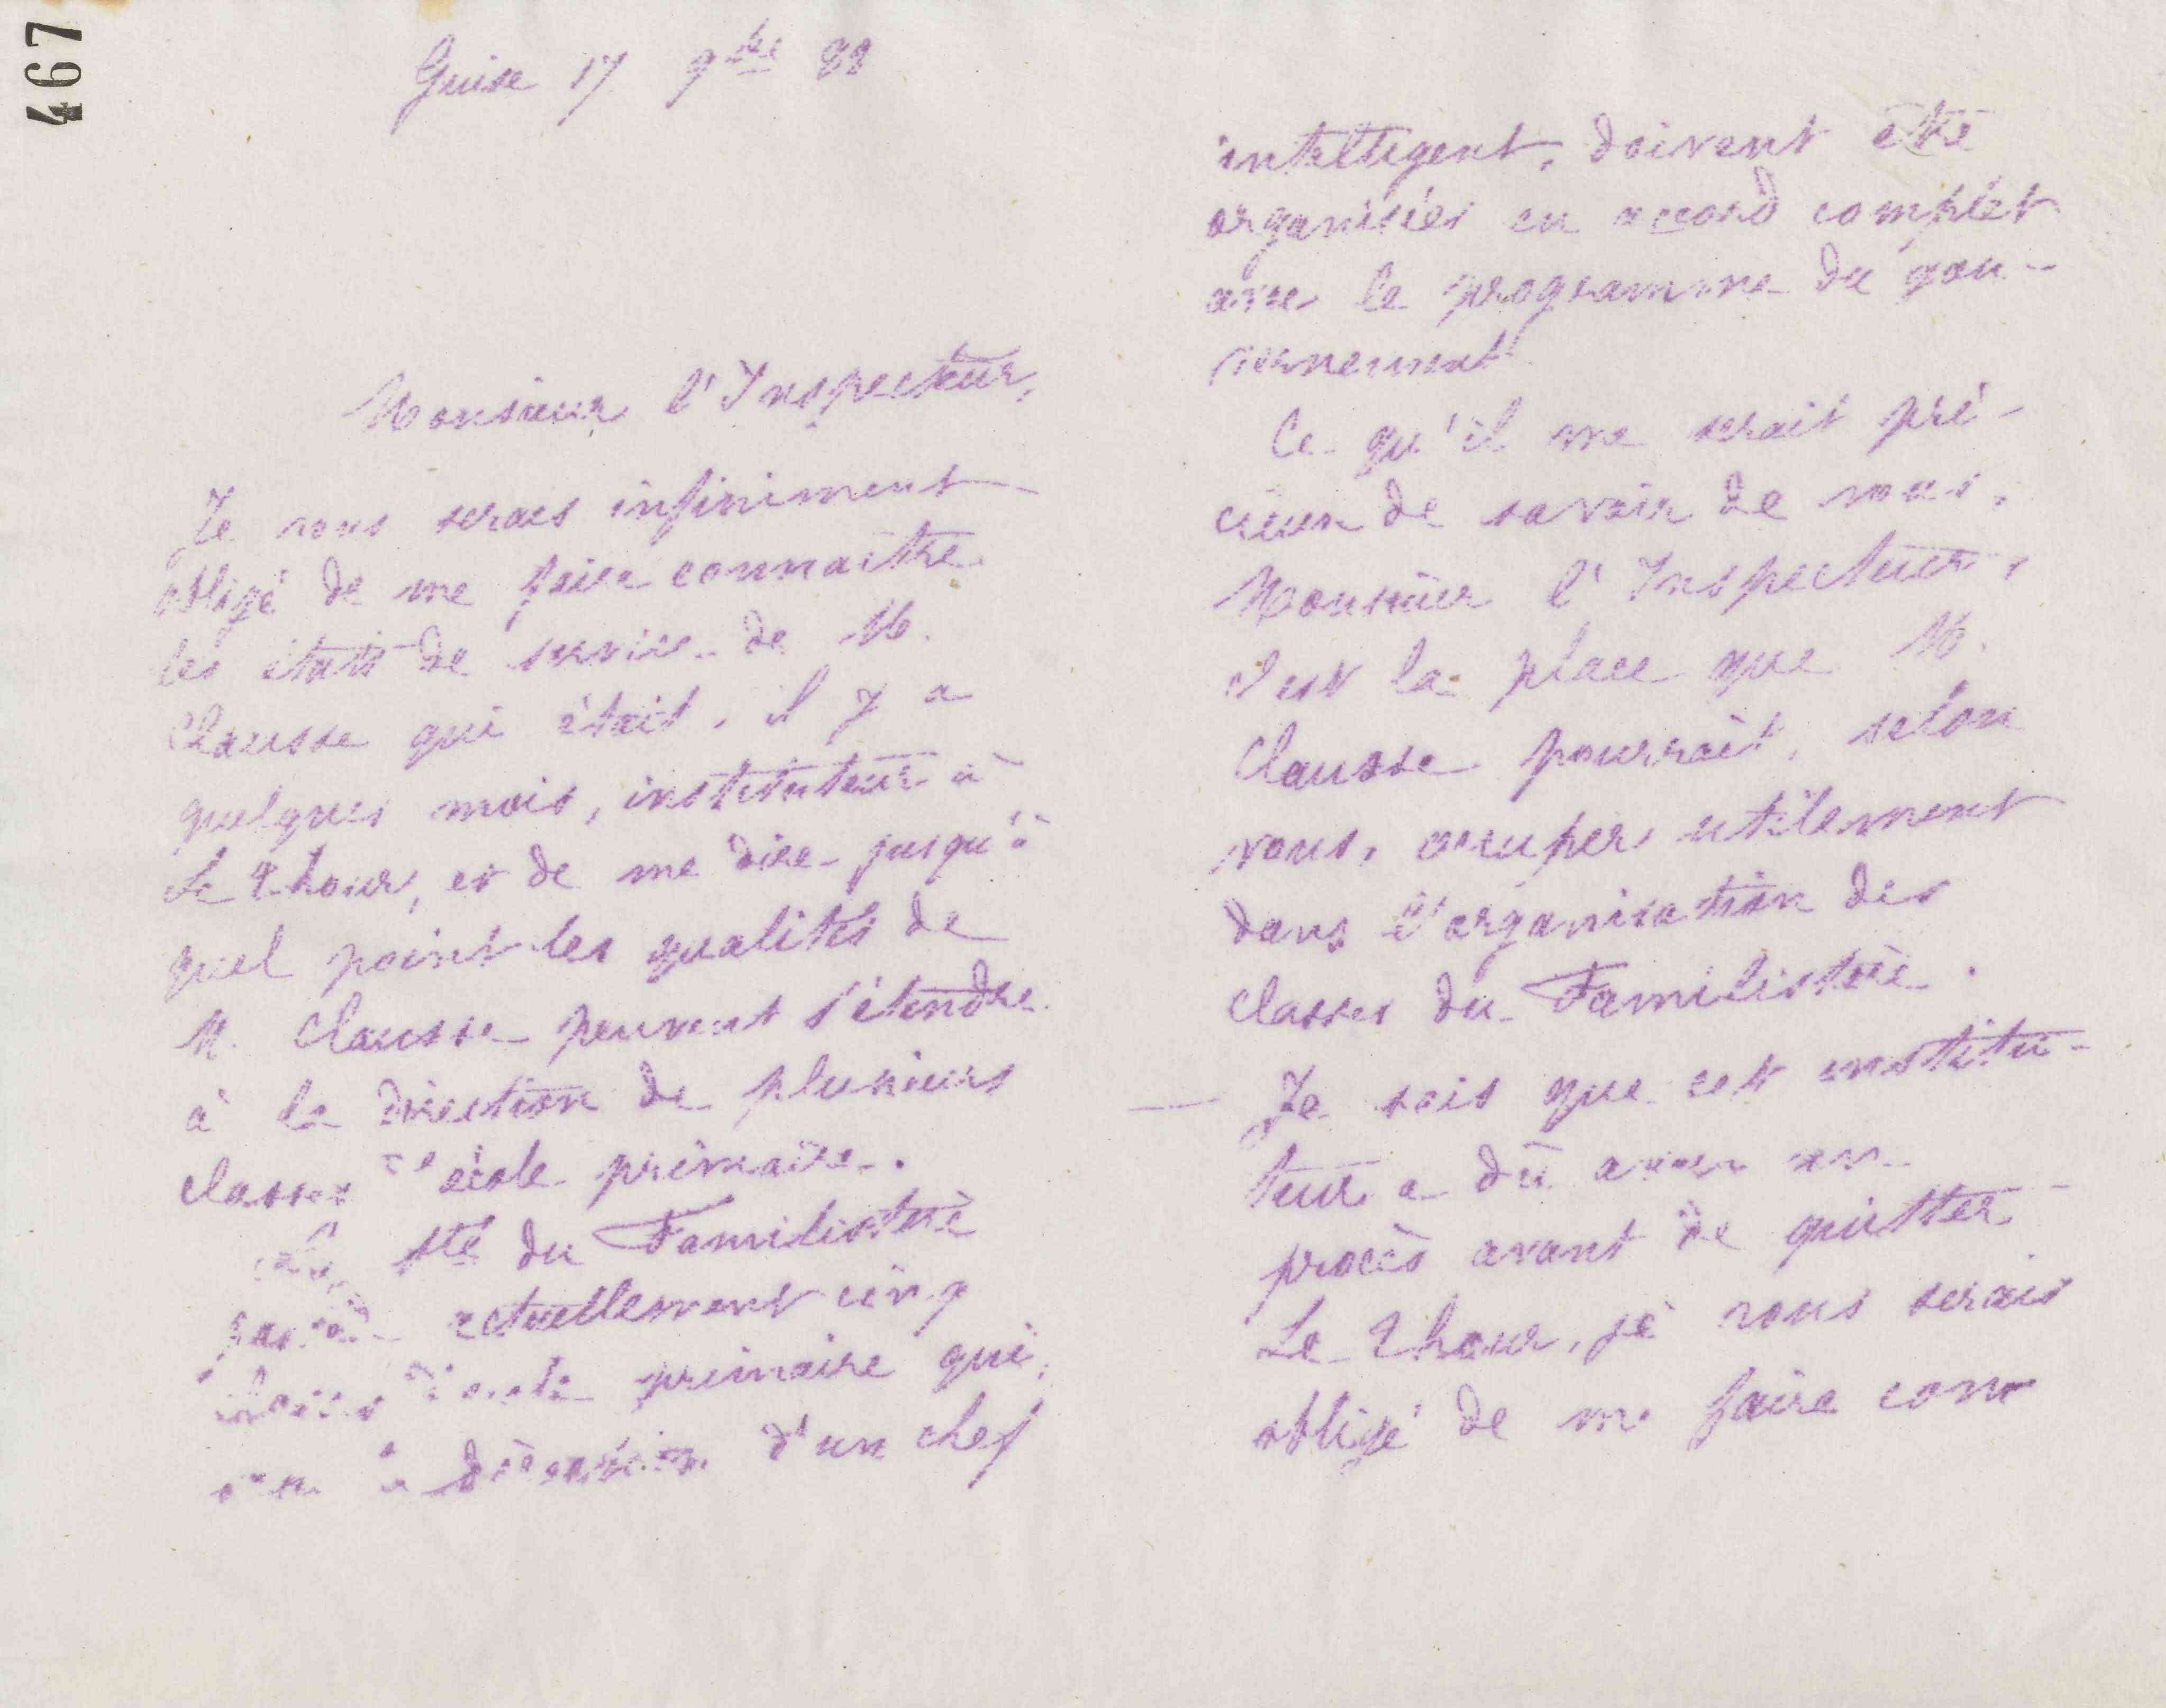 467
Guise 17 9bre 88
Monsieur l'Inspecteur,
Je vous serais infiniment
obligé de me faire connaître
les états de service de M.
Clausse qui était, il y a
quelques mois, instituteur à
Le Thour, et de me dire jusqu'à
quel point les qualités de
M. Clausse peuvent s'étendre
à la direction de plusieurs
classes d'école primaire.
La Sté du Familistère
possède actuellement cinq
classes d'école primaire qui,
sous la direction d'un chef
intelligent, doivent être
organisées en accord complet
avec le programme du gou-
vernement.
Ce qu'il me serait pré-
cieux de savoir de vous,
Monsieur l'Inspecteur,
c'est la place que M.
Clausse pourrait, selon
vous, occuper utilement
dans l'organisation des
classes du Familistère.
Je sais que cet institu-
teur a dû avoir un
procès avant de quitter
Le Thour, je vous serais
obligé de me faire con